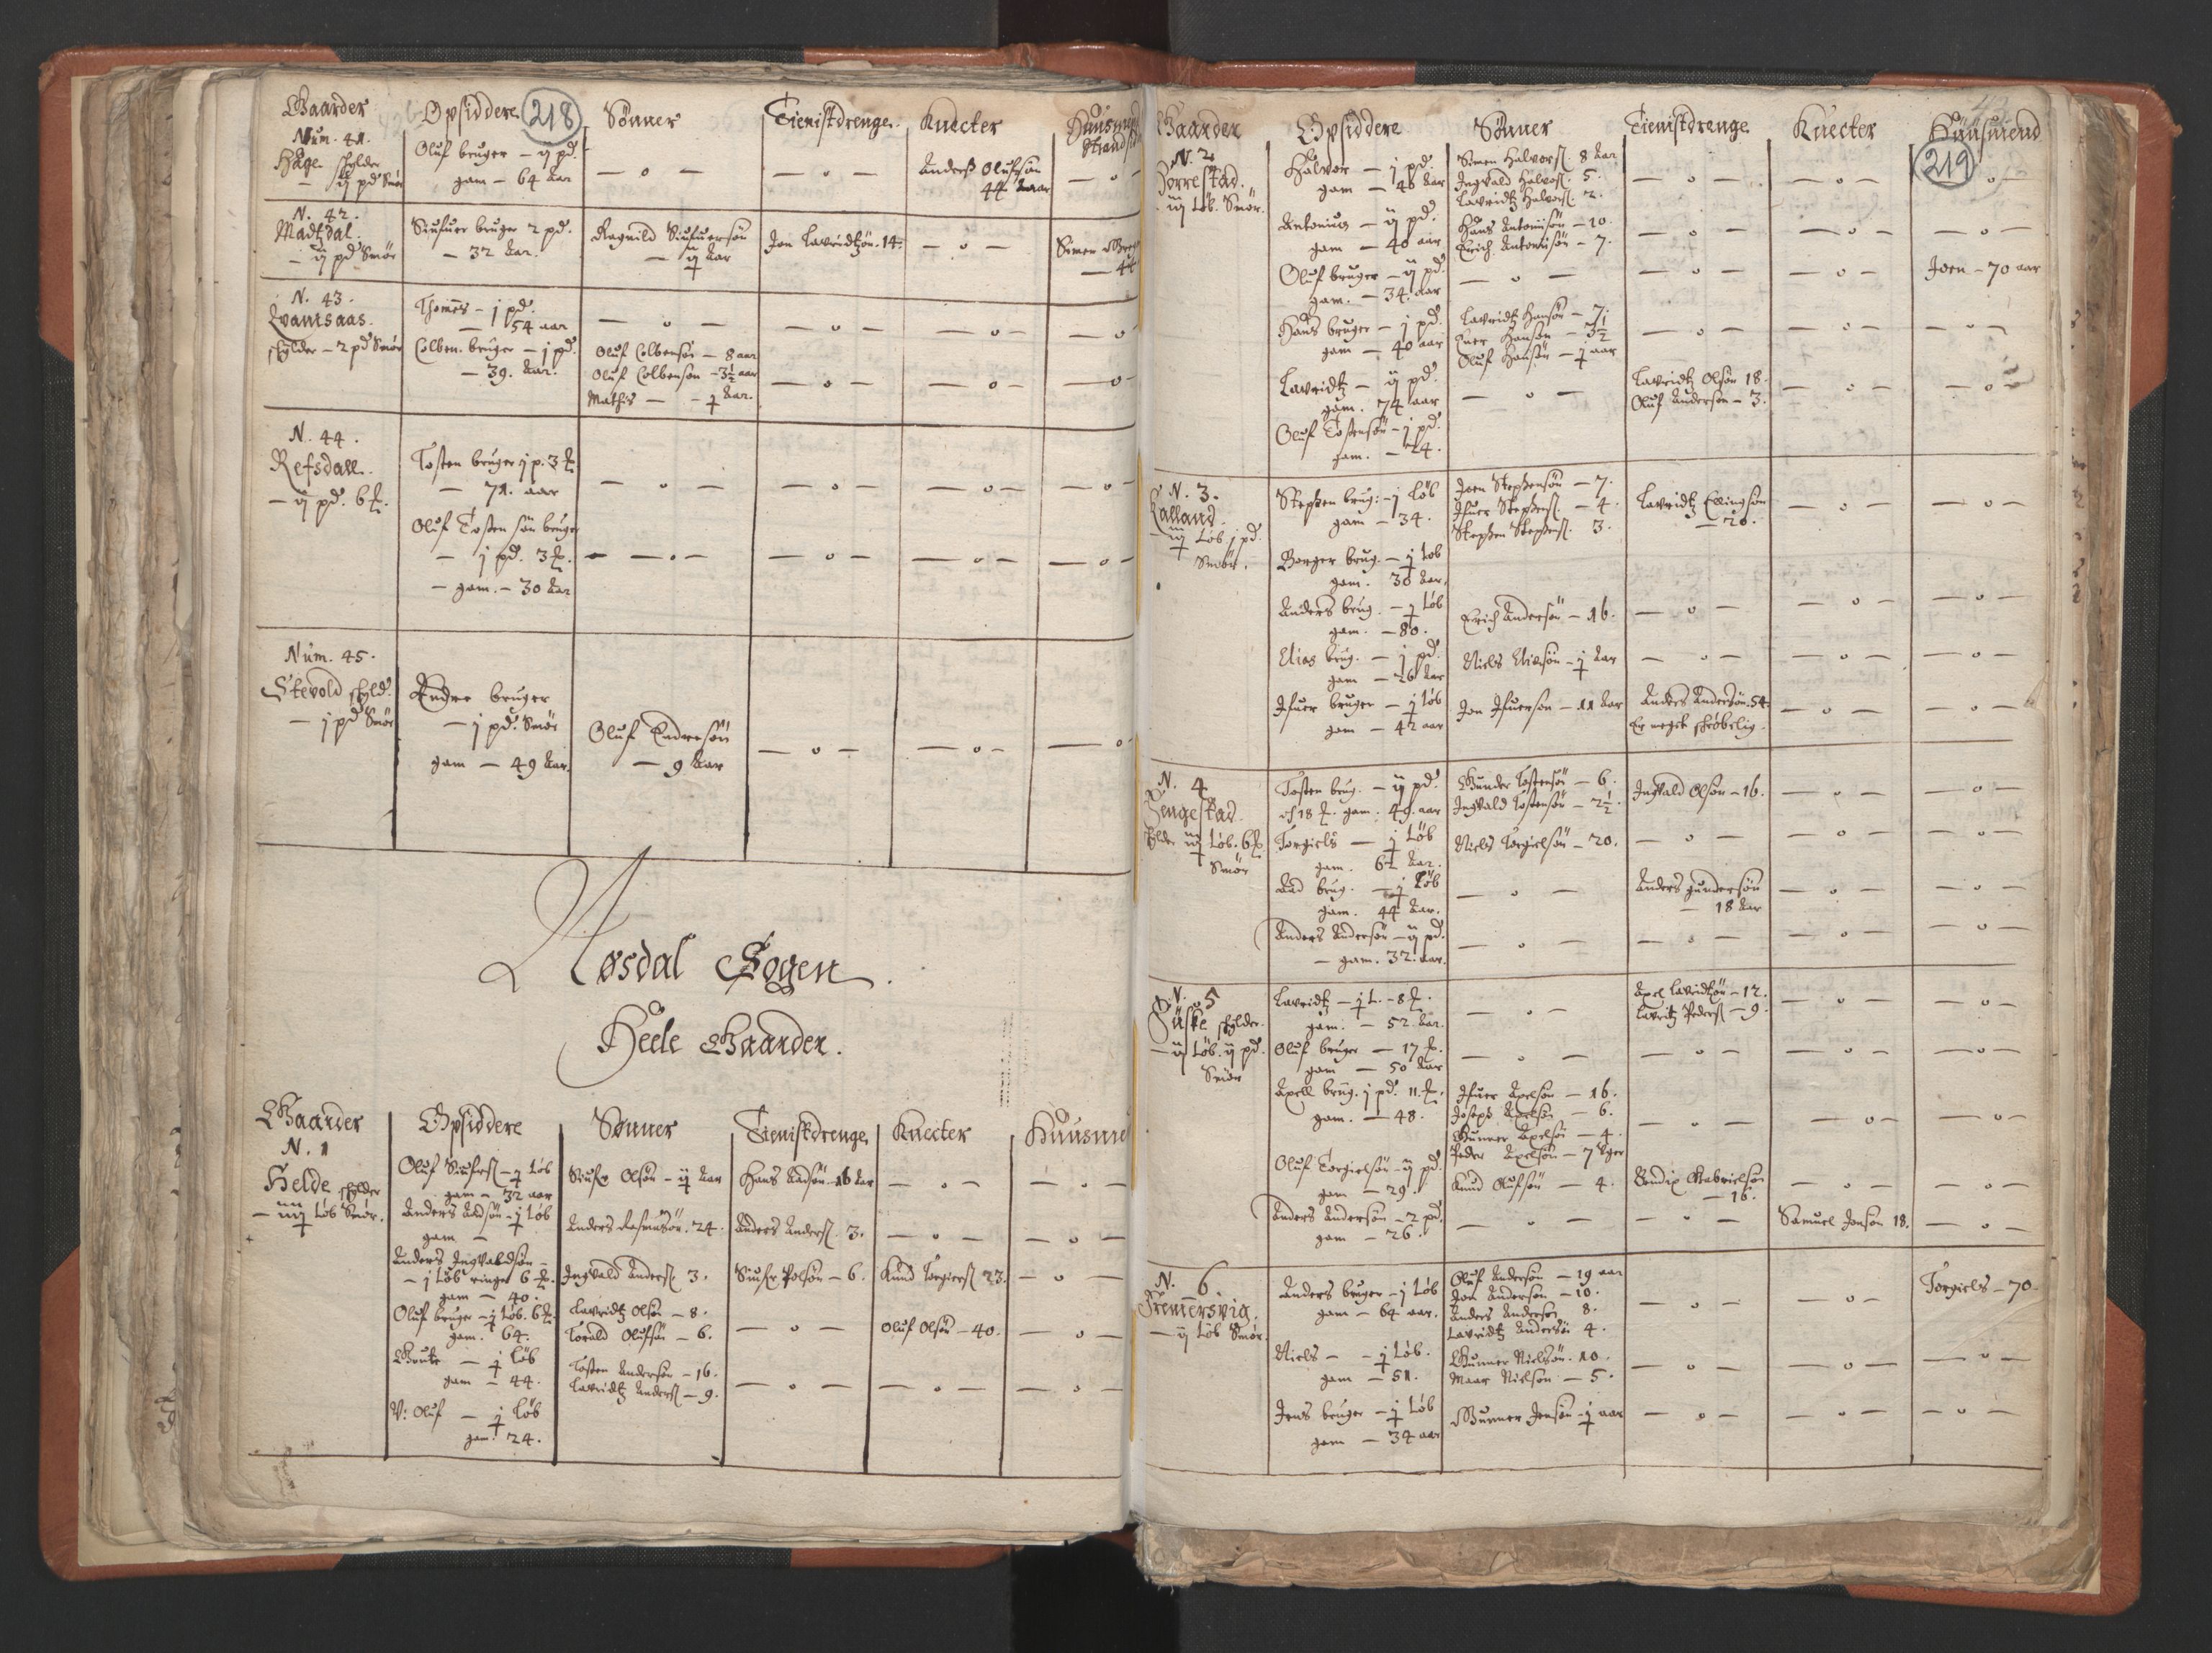 Gaarder
Opsiddere
218
Sønner
Tienistdrenge
Knecter
Num. 41.
Hage skylder
– ij pd Smør
Oluf bruger – ij pd.
gam – 64 aar
– o –
– o –
Anders Olufsøn
44 aar
– o –
N. 42.
Madtzdal.
– ij pd Smør
Siufuer bruger 2 pd.
– 32 aar.
Ragnild Siufuersøn
Jon Lavridtzøn. 14.
– o –
Simen
N. 43.
Qvamsaas.
skylder – 2 pd Smør
Thomes – j pd.
– 54 aar
Colben. bruger – j pd.
– 39. aar.
– o –
Oluf Colbensøn – 8 aar
Oluf Colbensøn – 3½ aar
Mathis
– o –
– o –
– o –
– o –
N. 44.
Refsdall.
– ij pd. 6
Tosten bruger j p. 3
– 71. aar
– o –
– o –
– o –
– o –
Oluf Tosten søn bruger
– j pd. 3
– gam. – 30 aar
– o –
– o –
– o –
– o –
Num. 45.
Stevold skyld.
– j pd Smør
Endre bruger
– j pd. Smør
gam – 49 aar.
Oluf Endresøn
– 9 aar
– o –
– o –
– o
Aøsdal Sogen.
Heele Gaarder.
Gaarder
Opsiddere
Sønner
Tienistdrenge
Knecter
N. 1
Helde skylder
Løb Smør.
Oluf Siufrs. – Løb
gam – 32 aar
Siufr Olsøn – aar
Hans Aadsøn – 16 aar
– o –
– o –
Anders Aadsøn – Løb
gam –
Anders Rasmusøn. 24.
Anders Anders. 3.
– o –
– o –
Anders Ingvaldsøn –
– j Løb ringer 6
gam – 40.
Ingvald Anders. 3.
Siufr Polsøn – 6.
Knud Torgiers. 23.
– o –
Oluf bruger – Løb. 6
gam. 64.
Lavridtz Olsøn – 8.
Torald Olufsøn – 6.
– o –
Oluf Olsøn – 40.
– o –
Goute – Løb
gam – 44.
Tosten Andersøn – 16.
Lavridtz Anders. – 9.
– o –
– o –
– o –
V: Oluf – Løb
gam. 24.
Gaarder
Opsiddere
Sønner
Tienistdrenge
Knecter
Huusmend
219
N. 2
Løb. Smør.
Halvor – j pd.
gam – 46 aar
Simen Halvors. 8 aar
Ingvald Halvors. 5.
Lavridtz Halvors. 2.
– o –
– o –
– o –
Antonius – ij pd.
gam – 40 aar
Hans Antoniisøn – 10.
Erich Antoniisøn – 7.
– o –
– o –
– o –
Oluf bruger – ij pd.
gam. – 34. aar
– o –
– o –
– o –
Joen – 70 aar
Hans bruger – j pd.
gam – 40 aar
Lavridtz Hansøn – 7.
Hansøn – 3½
Oluf Hansøn – aar
– o –
– o –
– o –
Lavridtz – ij pd.
gam. 74 aar
– o –
Lavridtz Olsøn 18.
Oluf Andersøn – 3.
– o –
– o –
Oluf Tostensøn – j pd.
gam. – 24.
N. 3.
Kalland.
Løb j pd.
Smør.
Stephen brug: – j Løb
gam – 34.
Joen Stephensøn – 7.
Ifuer Stephens. – 4.
Stephen Stephens. 3.
Lavridtz Ellingsøn
– 20.
– o –
– o –
Borger brug. – Løb
gam. 30 aar.
Anders brug. – Løb
gam. – 80.
Erich Andersøn – 16.
– o –
– o –
– o –
Elias brug. – j pd.
gam – 26 aar
Niels Eliesøn – aar
– o –
– o –
– o –
Ifuer bruger – Løb
gam – 42 aar
Jon Ifuersøn – 11 aar
Anders Andersøn. 54.
Er megit skrøbelig.
– o –
– o –
N. 4
skylder Løb. 6
Smør
Tosten brug. – ij pd.
18 gam. 49. aar
Gunder Tostensøn – 6.
Ingvald Tostensøn – 2½.
Ingvald Olsøn – 16.
– o –
– o –
Torgiels – Løb
gam. 62 aar.
Niels Torgielsøn – 20.
– o –
– o –
– o –
Aad brug. – Løb
gam. 44 aar.
– o –
Anders Gundersøn
– 18 aar
– o –
– o –
Anders Andersøn – ij pd.
– gam. 32. aar.
– o –
– o –
– o –
– o –
N. 5
skylder.
Løb. ij pd.
Smør
Lavridtz – L. – 8
gam. – 52 aar.
– o –
Axel Lavridtzøn – 12.
Lavritz Peders. – 9.
– o –
– o –
Oluf bruger – 17
gam – 50 aar
– o –
– o –
– o –
– o –
Axell brug. j pd. 11.
gam. – 48.
Ifuer Axelsøn – 16.
Joseph Axelsøn – 6.
Gunner Axelsøn – 4.
Peder Axelsøn – 7 Uger
– o –
– o –
– o –
Oluf Torgielsøn – ij pd.
gam – 29.
Knud Olufsøn – 4.
Bendix Gabrielsøn
– 16.
– o –
– o –
Anders Andersøn – 2 pd.
gam – 26.
– o –
– o –
Samuel Jonsøn 18.
– o –
N. 6.
– ij Løb Smør.
Anders bruger – j Løb
gam – 64 aar.
Oluf Andersøn – 19 aar
Jon Andersøn – 10.
Anders Andersøn 8.
Lavridtz Andersøn 4.
– o –
– o –
Torgiels – 70
Niels – – Løb.
gam – 51.
Gunner Nielsøn. 10.
Maar Nielsøn – 5.
– o –
– o –
– o –
Jens bruger – Løb
gam – 34 aar
Gunner Jensøn – aar
– o –
– o –
– o –